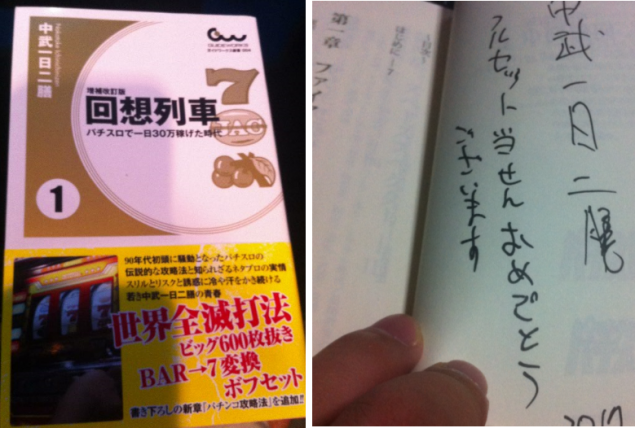 GUIDEWORKS
中武一日二膳
増補改訂版
回想列車
パチスロで一日30万稼げた時代
7
BAR
1
90年代初頭に騒動となったパチスロの
伝説的な攻略法と知られざるネタプロの実情
スリルとリスクと誘惑に冷や汗をかき続ける
若き中武一日二膳の青春
世界全滅打法
ビッグ600枚抜き
BAR→7変換
ボフセット
書き下ろしの新章『パチンコ攻略法』を追加!!
中武一日二膳
フルセット当せんおめでとう
ございます
はじめに
第一章